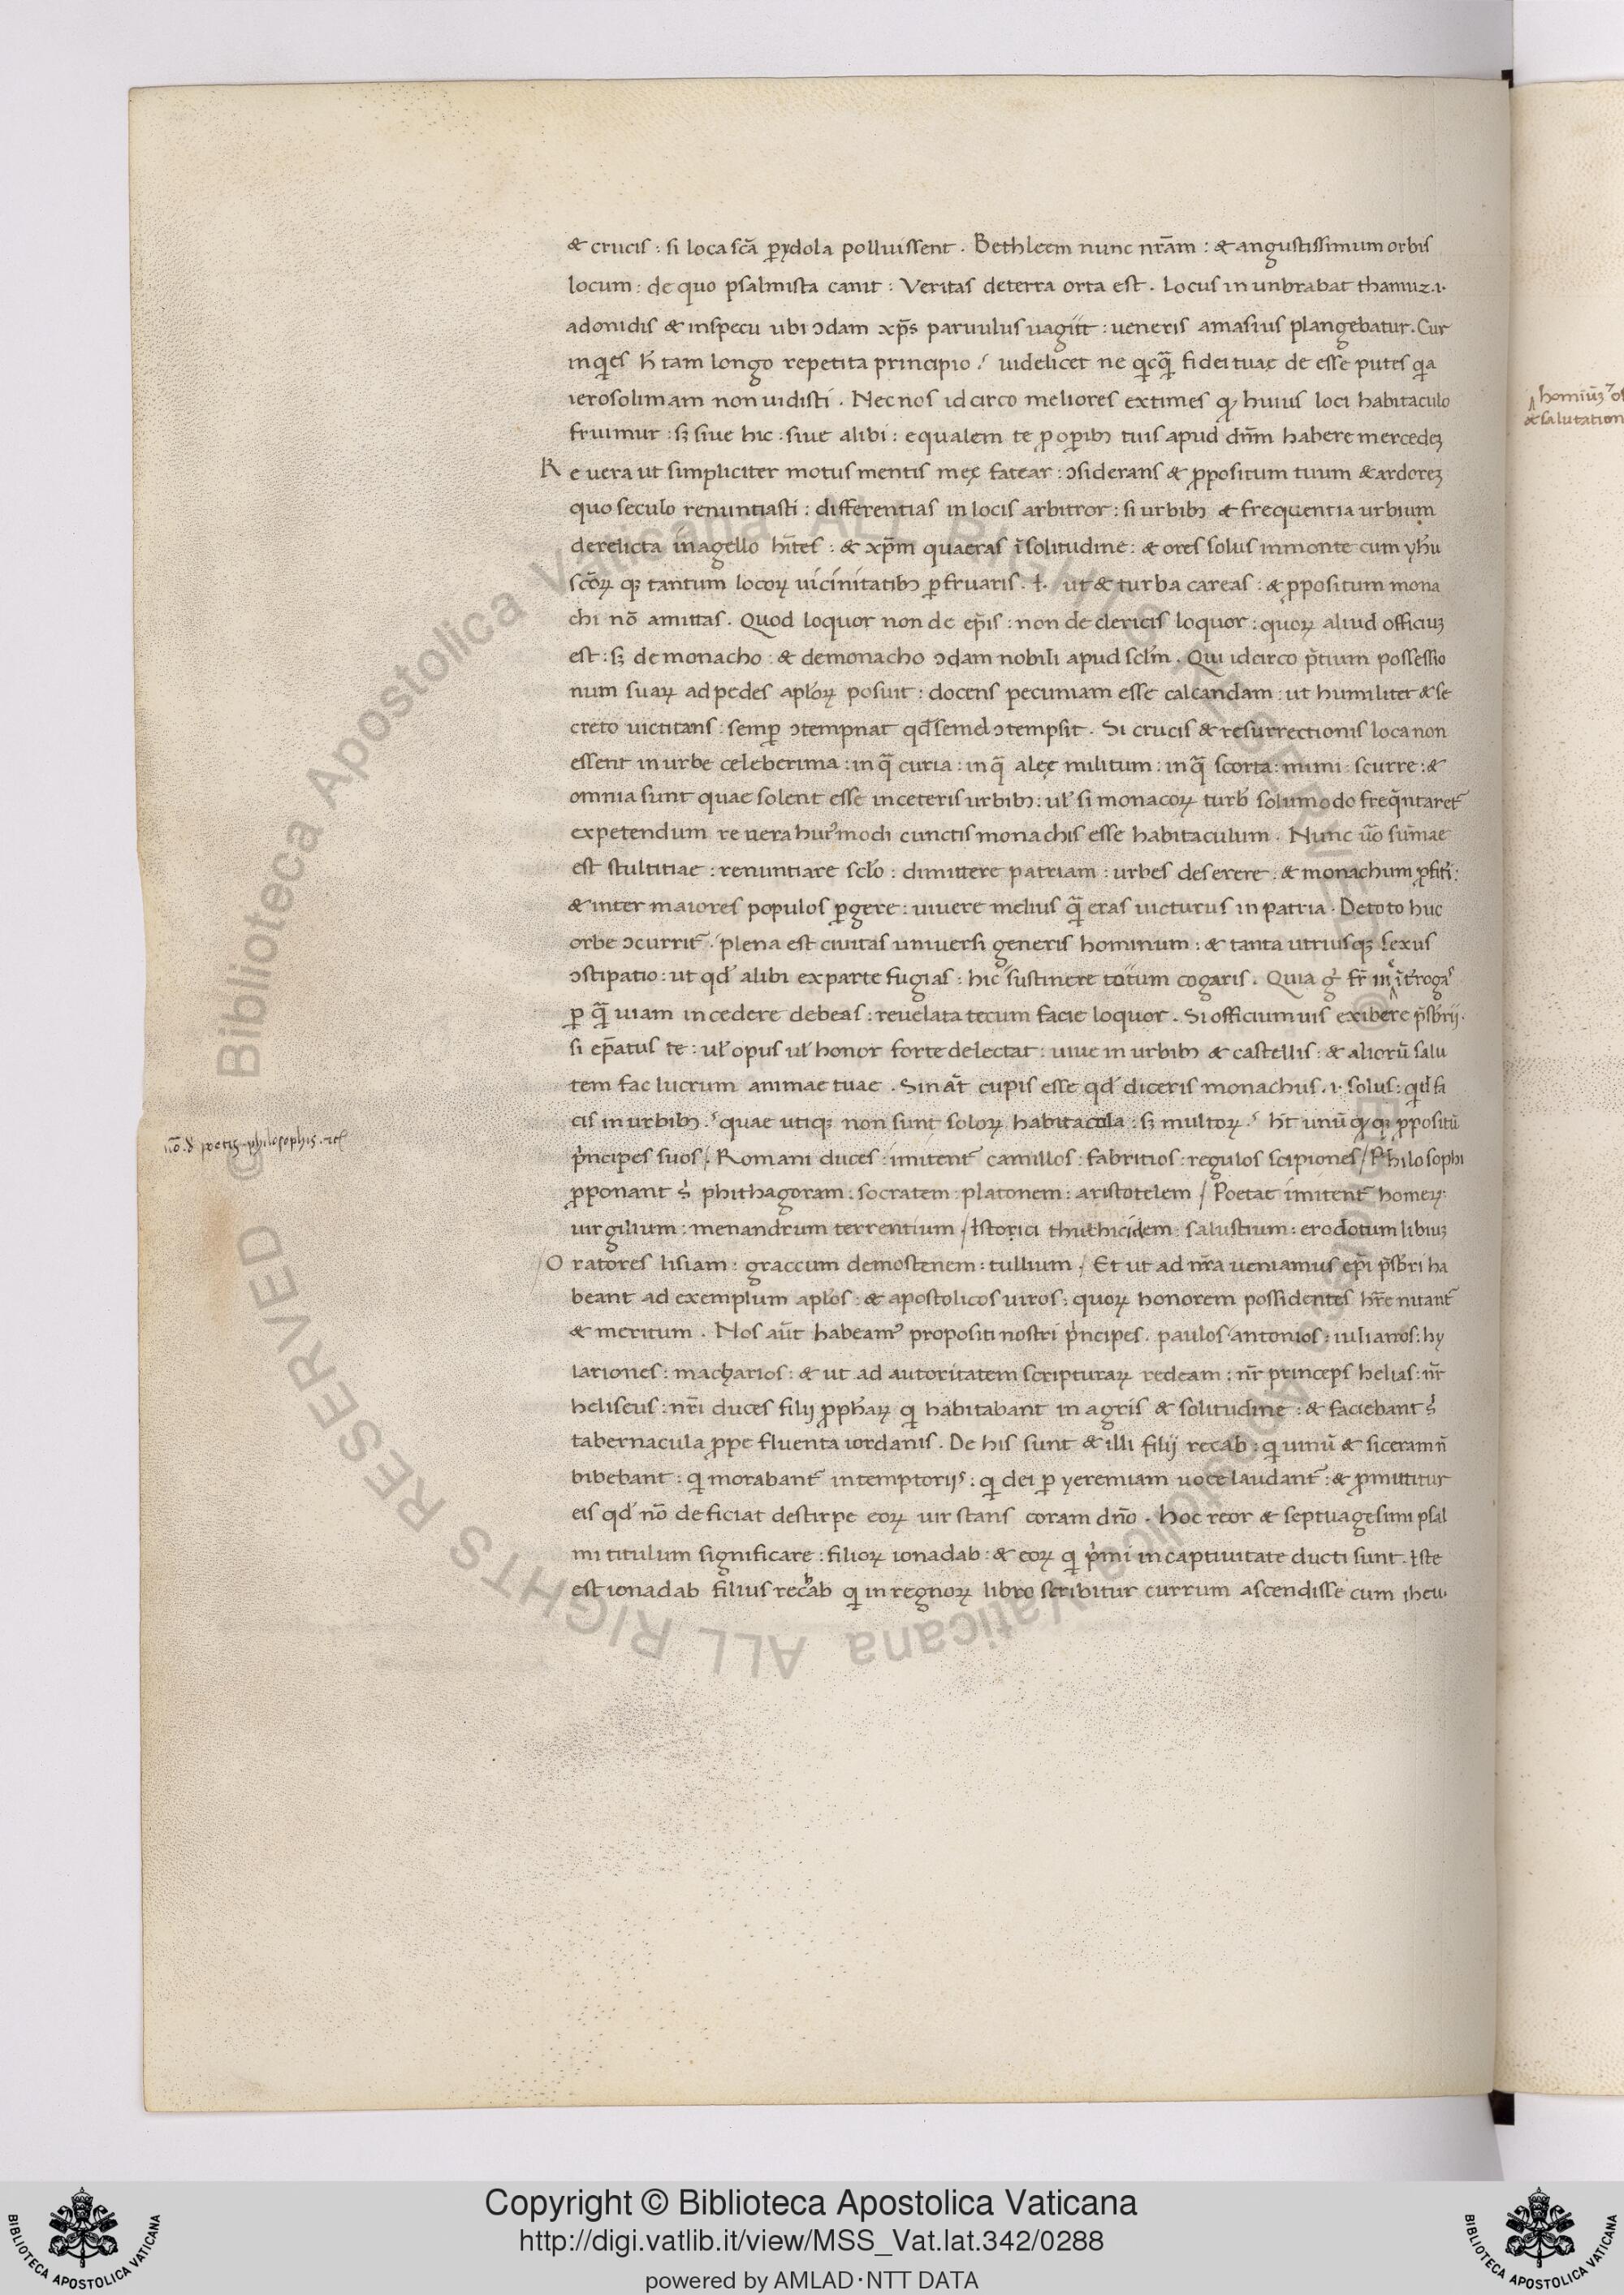 & crucis : si loca sc̄a ꝑ ydola polluissent . Bethleem nunc nr̄am : & angustissimum orbis
locum : de quo psalmista canit : Veritas de terra orta est . Locus inunbrabat thamuz .i.
adonidis & in specu ubi ↄdam xp̄s paruulus uagiit : ueneris amasius plangebatur . Cur
inqͥes h̄ tam longo repetita principio ? uidelicet ne qͥcqᷓ fidei tuaę de esse putes qͥa
ierosolimam non uidisti . Nec nos idcirco meliores extimes ꝙ huius loci habitaculo
fruimur : sꝫ siue hic : siue alibi : equalem te ꝓ oꝑibꝫ tuis apud dn̄m habere mercedeꝫ
Re uera ut simpliciter motus mentis meę fatear : ↄsiderans & ꝓpositum tuum & ardoreꝫ
quo seculo renuntiasti : differentias in locis arbitror : si urbibꝫ & frequentia urbium
derelicta in agello hītes : & xp̄m quaeras ī solitudine : & ores solus in monte cum yhu
sc̄oꝝ qꝫ tantum locoꝝ uicinitatibꝫ ꝑfruaris . ł. ut & turba careas : & ꝓpositum mona
chi nō amittas . Quod loquor non de ep̄is : non de clericis loquor : quoꝝ aliud officiuꝫ
est : sꝫ de monacho : & de monacho ↄdam nobili apud scl̄m . Qui idcirco p̄tium possessio
num suaꝝ ad pedes apl̄oꝝ posuit : docens pecuniam esse calcandam : ut humiliter & se
creto uictitans : semꝑ ↄtempnat qd̄ semel ↄtempsit . Si crucis & resurrectionis loca non
essent in urbe celeberima : in qᷓ curia : in qᷓ alęe militum : in qᷓ scorta : mimi : scurre : &
omnia sunt quae solent esse in ceteris urbibꝫ : ul̄ si monacoꝝ turb̄ solumodo freqn̄taret᷑
expetendum re uera huiꝰmodi cunctis monachis esse habitaculum . Nunc ūo sum̄ae
est stultitiae : renuntiare scl̄o : dimittere patriam : urbes deserere : & monachum ꝓfiti :
& inter maiores populos ꝑgere : uiuere melius qᷓ eras uicturus in patria . De toto huc
orbe ↄcurrit᷑ . plena est ciuitas uniuersi generis hominum : & tanta utriusqꝫ sexus
ↄstipatio : ut qd̄ alibi ex parte fugias : hic sustinere totum cogaris . Quia gͥ fr̄ m īt̄rogaˢ
ꝑ qᷓ uiam incedere debeas : reuelata tecum facie loquor . Si officium uis exibere p̄sbr̄ij .
si ep̄atus te : ul̄ opus ul̄ honor forte delectat : uiue in urbibꝫ & castellis : & aliorū salu
tem fac lucrum animae tuae . Sin āt cupis esse qd̄ diceris monachus .i. solus : qͥd fa
cis in urbibꝫ ? quae utiqꝫ non sunt soloꝝ habitacula : sꝫ multoꝝ ? ht̄ unūqͥqꝫ ꝓpositū
pͥncipes suos / Romani duces : imitent᷑ camillos : fabritios : regulos scipiones / Philosophi
ꝓponant sͥ phithagoram : socratem : platonem : aristotelem / Poetae imitent᷑ homeꝝ :
uirgilium : menandrum terrentium / Istorici thuthicidem : salustium : erodotum libiuꝫ
/ Oratores lisiam : graccum demostenem : tullium / Et ut ad nr̄a ueniamus ep̄i p̄sbri ha
beant ad exemplum apl̄os : & apostolicos uiros : quoꝝ honorem possidentes hr̄e nitant᷑
& meritum . Nos aūt habeamꝰ propositi nostri pͥncipes . paulos : antonios : iulianos : hy
lariones : macharios : & ut ad autoritatem scripturaꝝ redeam : nr̄ princeps helias : nr̄
heliseus : nr̄i duces filij ꝓph̄aꝝ qͥ habitabant in agris & solitudine : & faciebant sͥ
tabernacula ꝓpe fluenta iordanis . De his sunt & illi filij recab : qͥ uinū & siceram n̄
bibebant : qͥ morabant᷑ in temptorijs : qͥ dei ꝑ yeremiam uoce laudant᷑ : & ꝓmittitur
eis qd̄ nō deficiat de stirpe eoꝝ uir stans coram dn̄o . Hoc reor & septuagesimi psal
mi titulum significare : filioꝝ ionadab : & eoꝝ qͥ pͥmi in captiuitate ducti sunt . Iste
est ionadab filius rechab qͥ in regnoꝝ libro scribitur currum ascendisse cum iheu .
nō. d poetis. philosophis. 
homiūꝫ
& salutation
Biblioteca Apostolica Vaticana ALL RIGHTS RESERVED ©
Copyright © Biblioteca Apostolica Vaticana
http://digi.vatlib.it/view/MSS_Vat.lat.342/0288
powered by AMLAD·NTT DATA
BIBLIOTECA APOSTOLICA VATICANA
BIBLIOTECA APOSTOLICA VATICANA